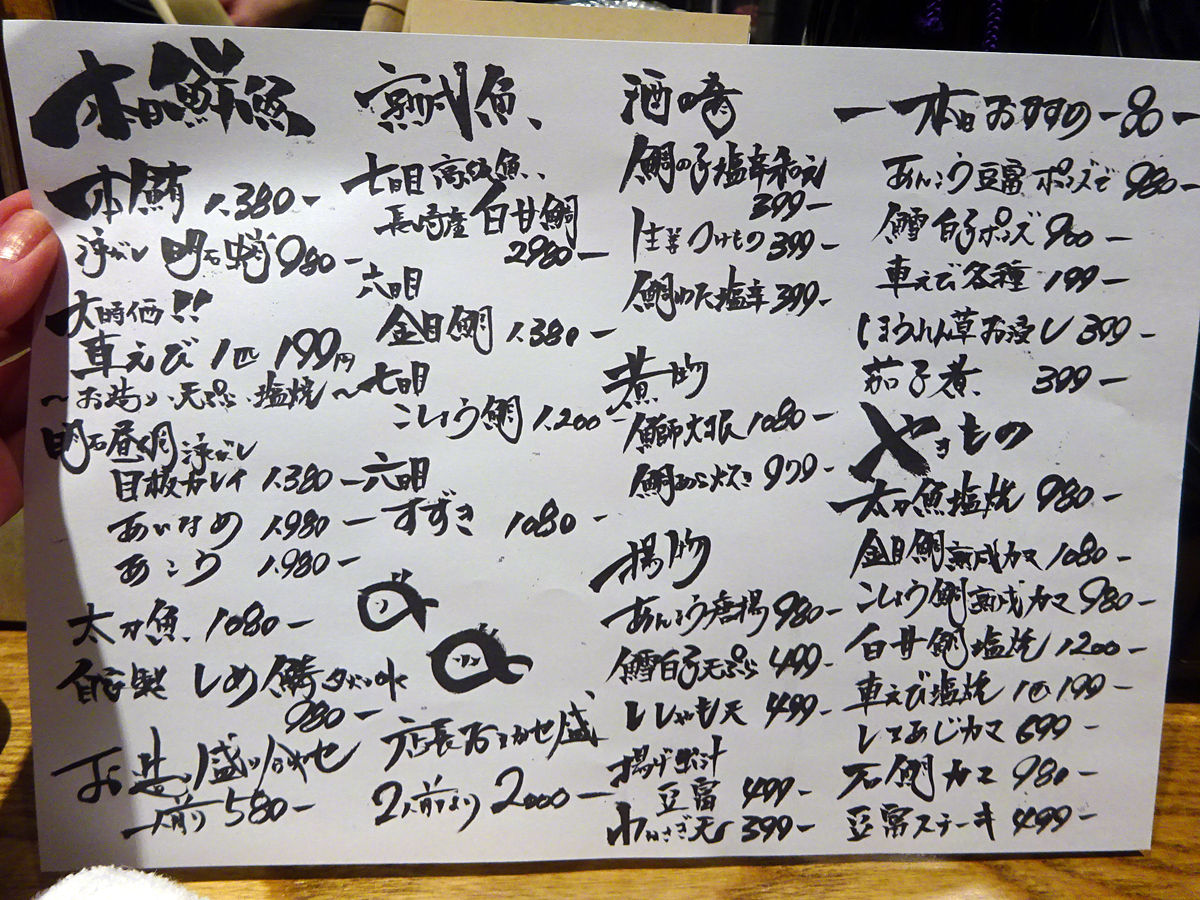 本日鮮魚
本鮪 1.380-
泳がし 明石蛸 980-
大時価!!
車えび 1匹 199円
~お造り、天ぷら、塩焼~
明石昼網 泳がし
目板ガレイ 1.380-
あいなめ 1.980-
あこう 1.980-
太刀魚 1080-
自家製 しめ鯖
980-
お造り盛り合わせ
一人前 580-
熟成魚
七日目 高級魚
長崎産 白甘鯛
2980-
六日目
金目鯛 1.380-
七日目
こしょう鯛 1.200-
六日目
すずき 1080-
店長おまかせ盛
2人前より 2000-
酒肴
鯛の子塩辛和え
399-
生姜つけもの 399-
鯛わた塩辛 399-
煮物
鰤大根 1080-
鯛あら炊き 979-
揚物
あんこう唐揚 980-
鱈白子天ぷら 499-
ししゃも天 499-
揚げ出汁
豆腐 499-
わかさぎ天 399-
ー本日おすすめ一品ー
あんこう豆腐ポンズで 980-
鱈白子ポンズ 900-
車えび各種 199-
ほうれん草お浸し 399-
茄子煮 399-
やきもの
太刀魚塩焼 980-
金目鯛熟成カマ 1080-
こしょう鯛熟成カマ 980-
白甘鯛塩焼 1200-
車えび塩焼 1匹 199-
しまあじカマ 699-
石鯛カマ 980-
豆腐ステーキ 499-